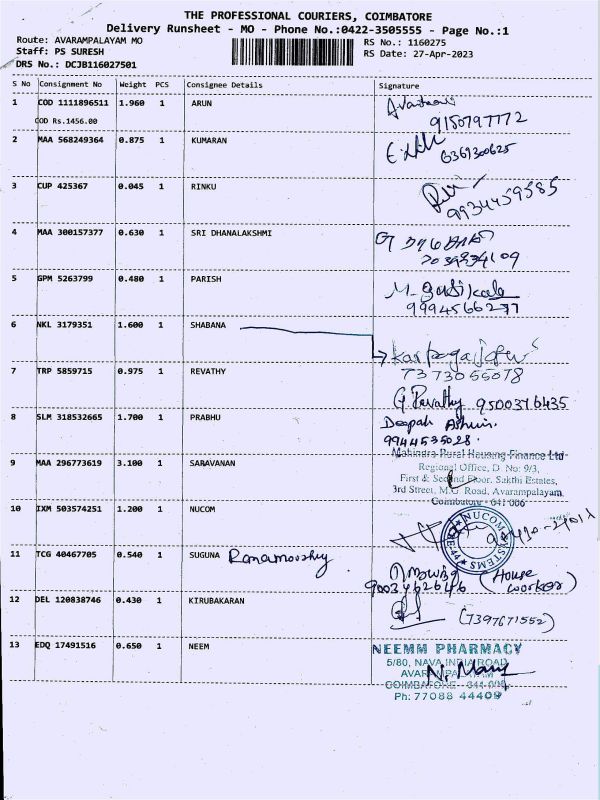 THE PROFESSIONAL COURIERS, COIMBATORE
Delivery Runsheet - MO - Phone No.:0422-3505555 - Page No.:1
Route: AVARAMPALAYAM MO
Staff: PS SURESH
DRS No.: DCJB116027501
RS No.: 1160275
RS Date: 27-Apr-2023
S No Consignment No Weight PCS Consignee Details Signature
1 COD 1111896511 1.960 1 ARUN
COD Rs.1456.00
9150797772
2 MAA 568249364 0.875 1 KUMARAN
6369300625
3 CUP 425367 0.045 1 RINKU
9934459585
4 MAA 300157377 0.630 1 SRI DHANALAKSHMI
5 GPM 5263799 0.480 1 PARISH
M. Sasikala
9994566237
6 NKL 3179351 1.600 1 SHABANA
7373055078
7 TRP 5859715 0.975 1 REVATHY
G Revathy 9500376435
8 SLM 318532665 1.700 1 PRABHU
Deepak Ashwin.
9944535028.
9 MAA 296773619 3.100 1 SARAVANAN
Mahindra Rural Housing Finance Ltd
Regional Office, D. No: 9/3,
First & Second Floor. Sakthi Estates,
3rd Street, M.G. Road, Avarampalayam,
Coimbatore - 641 006
10 IXM 503574251 1.200 1 NUCOM
NUCOM SYSTEMS
11 TCG 40467705 0.540 1 SUGUNA Ramamoorthy
9003462646 (House worker)
12 DEL 120838746 0.430 1 KIRUBAKARAN
(7397671552)
13 EDQ 17491516 0.650 1 NEEM
NEEMM PHARMACY
5/80, NAVA INDIA ROAD
AVARAMPALAYAM
COIMBATORE
N. Mary
Ph: 77088 44409